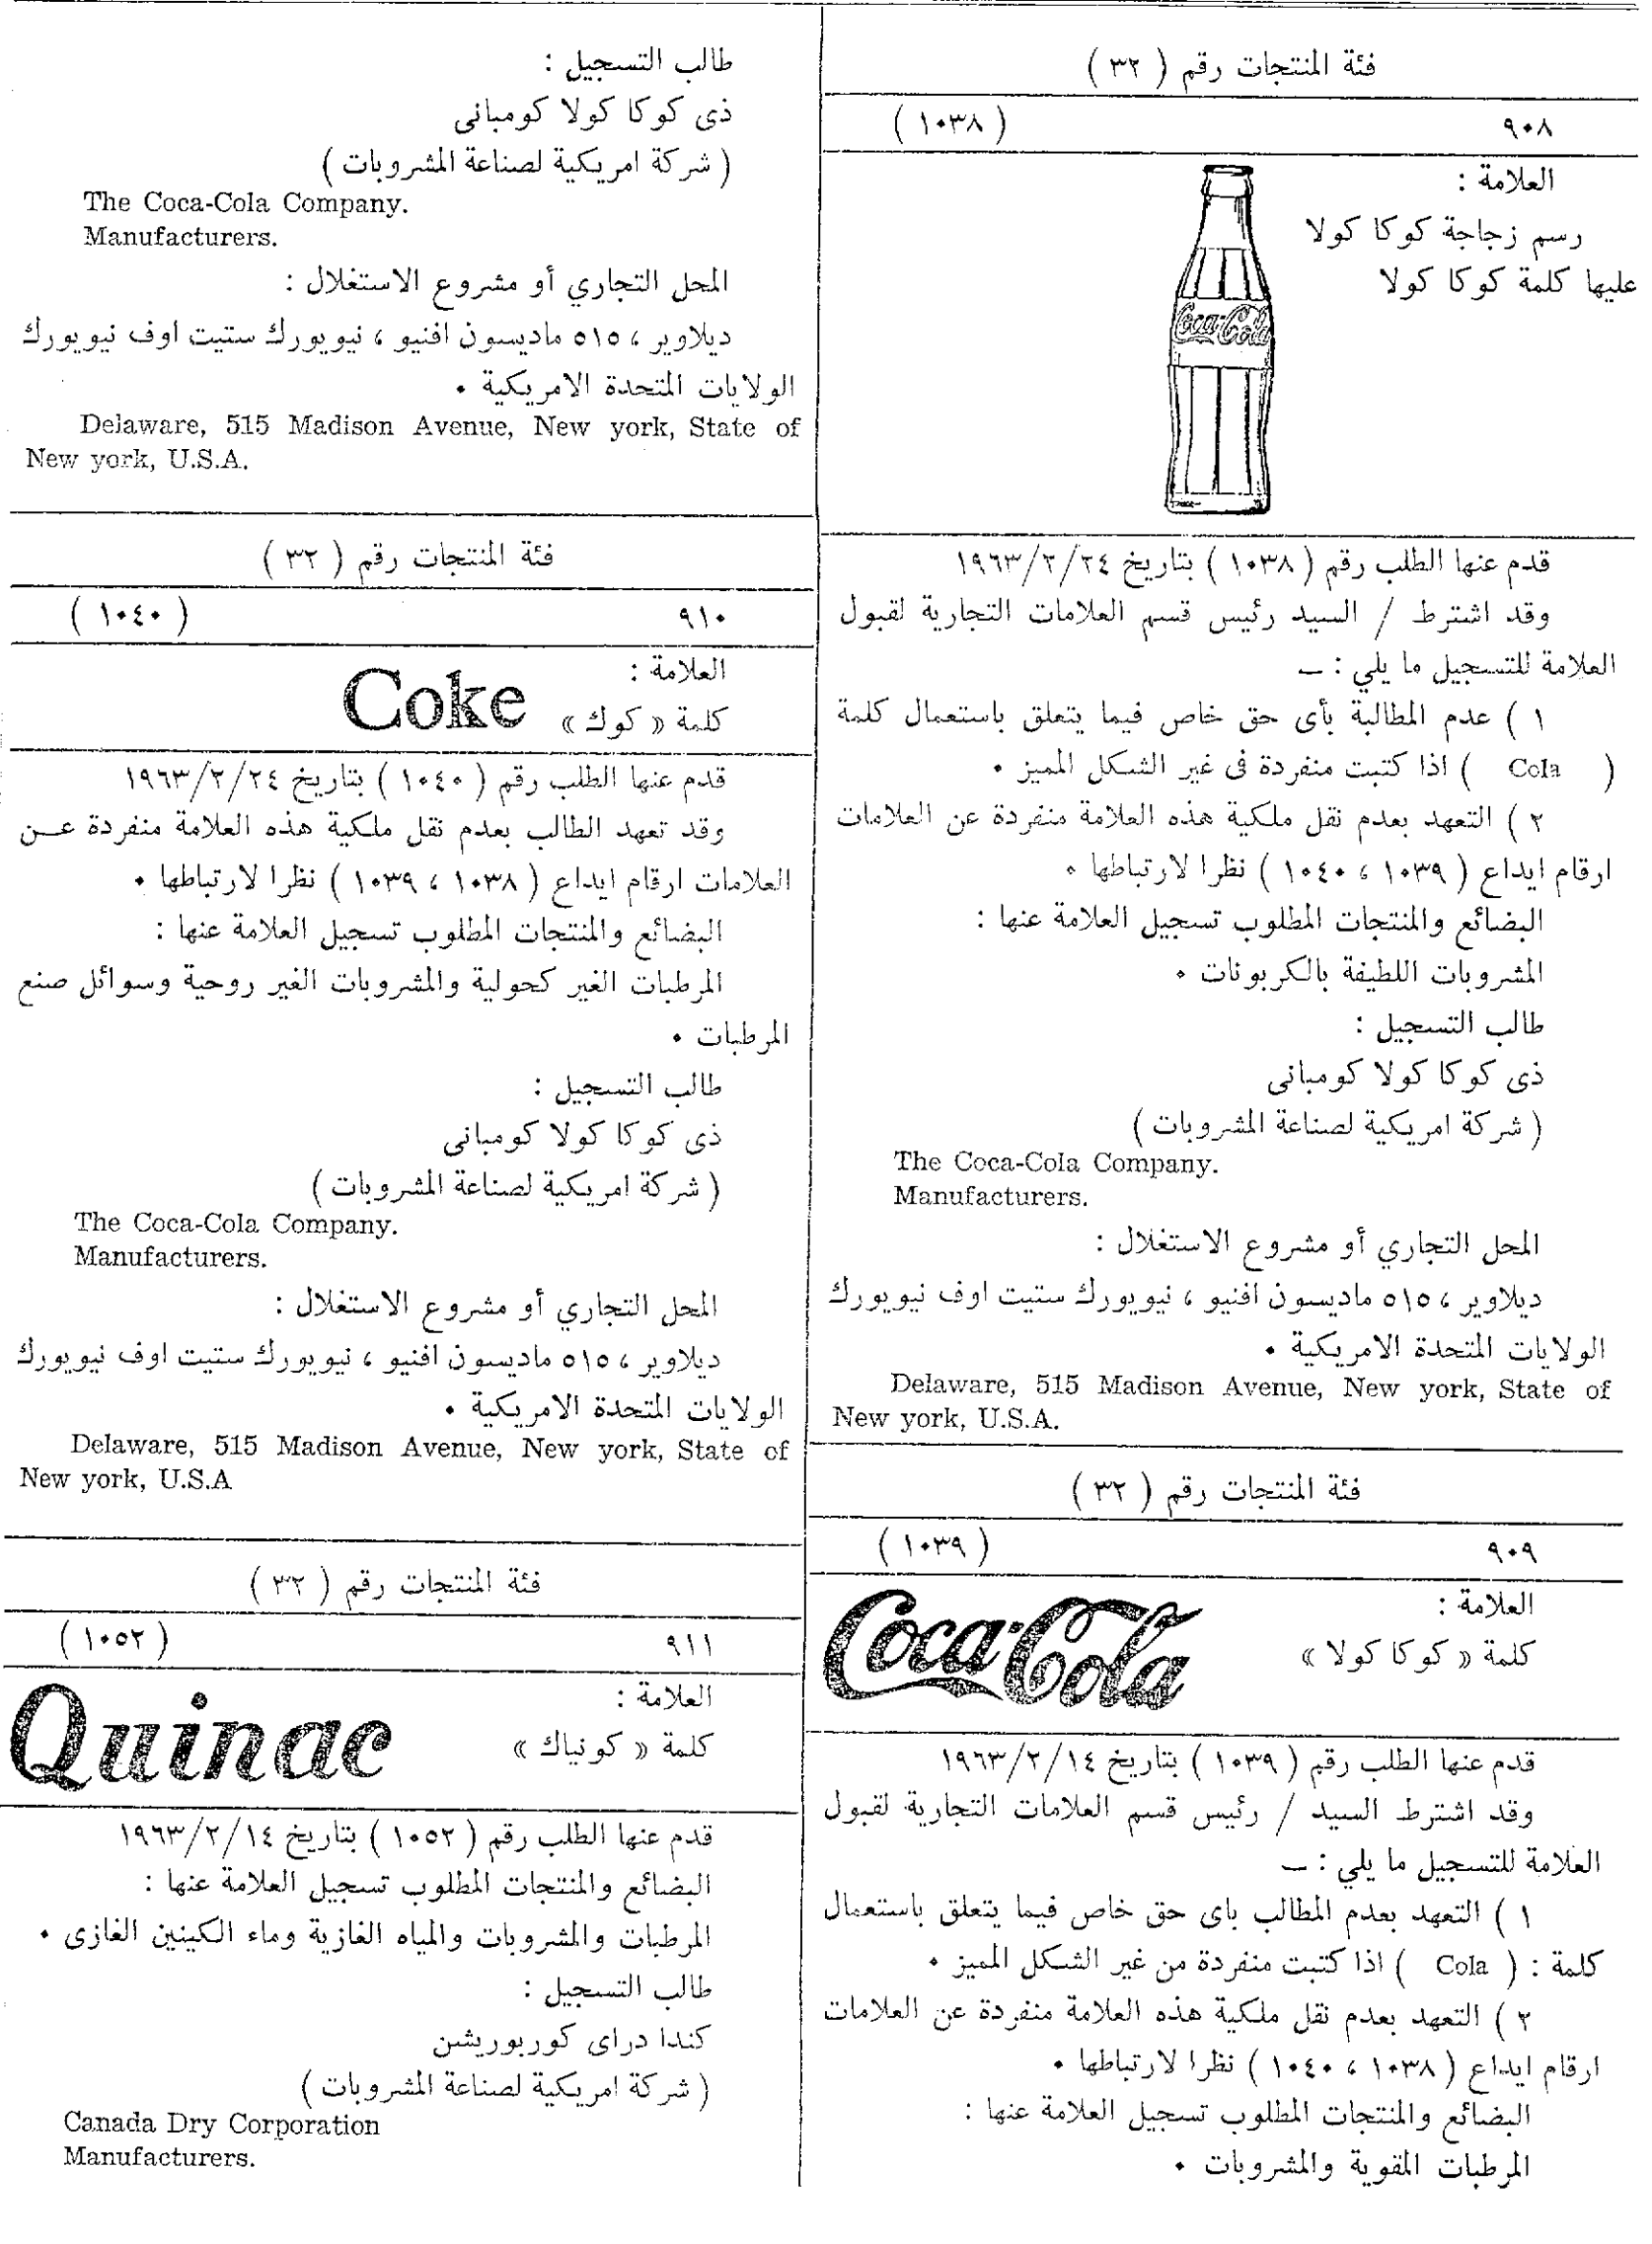 فئة المنتجات رقم ( ٣٢ )
٩٠٨ ( ١٠٣٨ )
العلامة :
رسم زجاجة كوكا كولا
عليها كلمة كوكا كولا
Coca-Cola
قدم عنها الطلب رقم ( ١٠٣٨ ) بتاريخ ١٩٦٣/٢/٢٤
وقد اشترط / السيد رئيس قسم العلامات التجارية لقبول
العلامة للتسجيل ما يلي : ــ
١ ) عدم المطالبة بأى حق خاص فيما يتعلق باستعمال كلمة
( Cola ) اذا كتبت منفردة فى غير الشكل المميز ٠
٢ ) التعهد بعدم نقل ملكية هذه العلامة منفردة عن العلامات
ارقام ايداع ( ١٠٣٩ ، ١٠٤٠ ) نظرا لارتباطها ٠
البضائع والمنتجات المطلوب تسجيل العلامة عنها :
المشروبات اللطيفة بالكربونات ٠
طالب التسجيل :
ذى كوكا كولا كومبانى
( شركة امريكية لصناعة المشروبات )
The Coca-Cola Company.
Manufacturers.
المحل التجاري أو مشروع الاستغلال :
ديلاوير ، ٥١٥ ماديسون افنيو ، نيويورك ستيت اوف نيويورك
الولايات المتحدة الامريكية ٠
Delaware, 515 Madison Avenue, New york, State of
New york, U.S.A.
فئة المنتجات رقم ( ٣٢ )
٩٠٩ ( ١٠٣٩ )
العلامة :
كلمة « كوكا كولا »
Coca-Cola
قدم عنها الطلب رقم ( ١٠٣٩ ) بتاريخ ١٩٦٣/٢/١٤
وقد اشترط السيد / رئيس قسم العلامات التجارية لقبول
العلامة للتسجيل ما يلي : ــ
١ ) التعهد بعدم المطالب باى حق خاص فيما يتعلق باستعمال
كلمة : ( Cola ) اذا كتبت منفردة من غير الشكل المميز ٠
٢ ) التعهد بعدم نقل ملكية هذه العلامة منفردة عن العلامات
ارقام ايداع ( ١٠٣٨ ، ١٠٤٠ ) نظرا لارتباطها ٠
البضائع والمنتجات المطلوب تسجيل العلامة عنها :
المرطبات المقوية والمشروبات ٠
طالب التسجيل :
ذى كوكا كولا كومبانى
( شركة امريكية لصناعة المشروبات )
The Coca-Cola Company.
Manufacturers.
المحل التجاري أو مشروع الاستغلال :
ديلاوير ، ٥١٥ ماديسون افنيو ، نيويورك ستيت اوف نيويورك
الولايات المتحدة الامريكية ٠
Delaware, 515 Madison Avenue, New york, State of
New york, U.S.A.
فئة المنتجات رقم ( ٣٢ )
٩١٠ ( ١٠٤٠ )
العلامة :
كلمة « كوك » Coke
قدم عنها الطلب رقم ( ١٠٤٠ ) بتاريخ ١٩٦٣/٢/٢٤
وقد تعهد الطالب بعدم نقل ملكية هذه العلامة منفردة عــن
العلامات ارقام ايداع ( ١٠٣٨ ، ١٠٣٩ ) نظرا لارتباطها ٠
البضائع والمنتجات المطلوب تسجيل العلامة عنها :
المرطبات الغير كحولية والمشروبات الغير روحية وسوائل صنع
المرطبات ٠
طالب التسجيل :
ذى كوكا كولا كومبانى
( شركة امريكية لصناعة المشروبات )
The Coca-Cola Company.
Manufacturers.
المحل التجاري أو مشروع الاستغلال :
ديلاوير ، ٥١٥ ماديسون افنيو ، نيويورك ستيت اوف نيويورك
الولايات المتحدة الامريكية ٠
Delaware, 515 Madison Avenue, New york, State of
New york, U.S.A
فئة المنتجات رقم ( ٣٢ )
٩١١ ( ١٠٥٢ )
العلامة :
كلمة « كونياك » Quinac
قدم عنها الطلب رقم ( ١٠٥٢ ) بتاريخ ١٩٦٣/٢/١٤
البضائع والمنتجات المطلوب تسجيل العلامة عنها :
المرطبات والمشروبات والمياه الغازية وماء الكينين الغازى ٠
طالب التسجيل :
كندا دراى كوربوريشن
( شركة امريكية لصناعة المشروبات )
Canada Dry Corporation
Manufacturers.